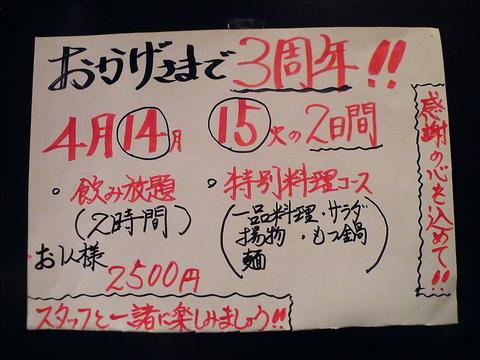 おかげさまで3周年!!
4月14月 15火の2日間
。飲み放題
(2時間)
。特別料理コース
(一品料理・サラダ
揚物・もつ鍋
麺)
お1人様
2500円
感謝の心を込めて!!
スタッフと一諸に楽しみましょう!!